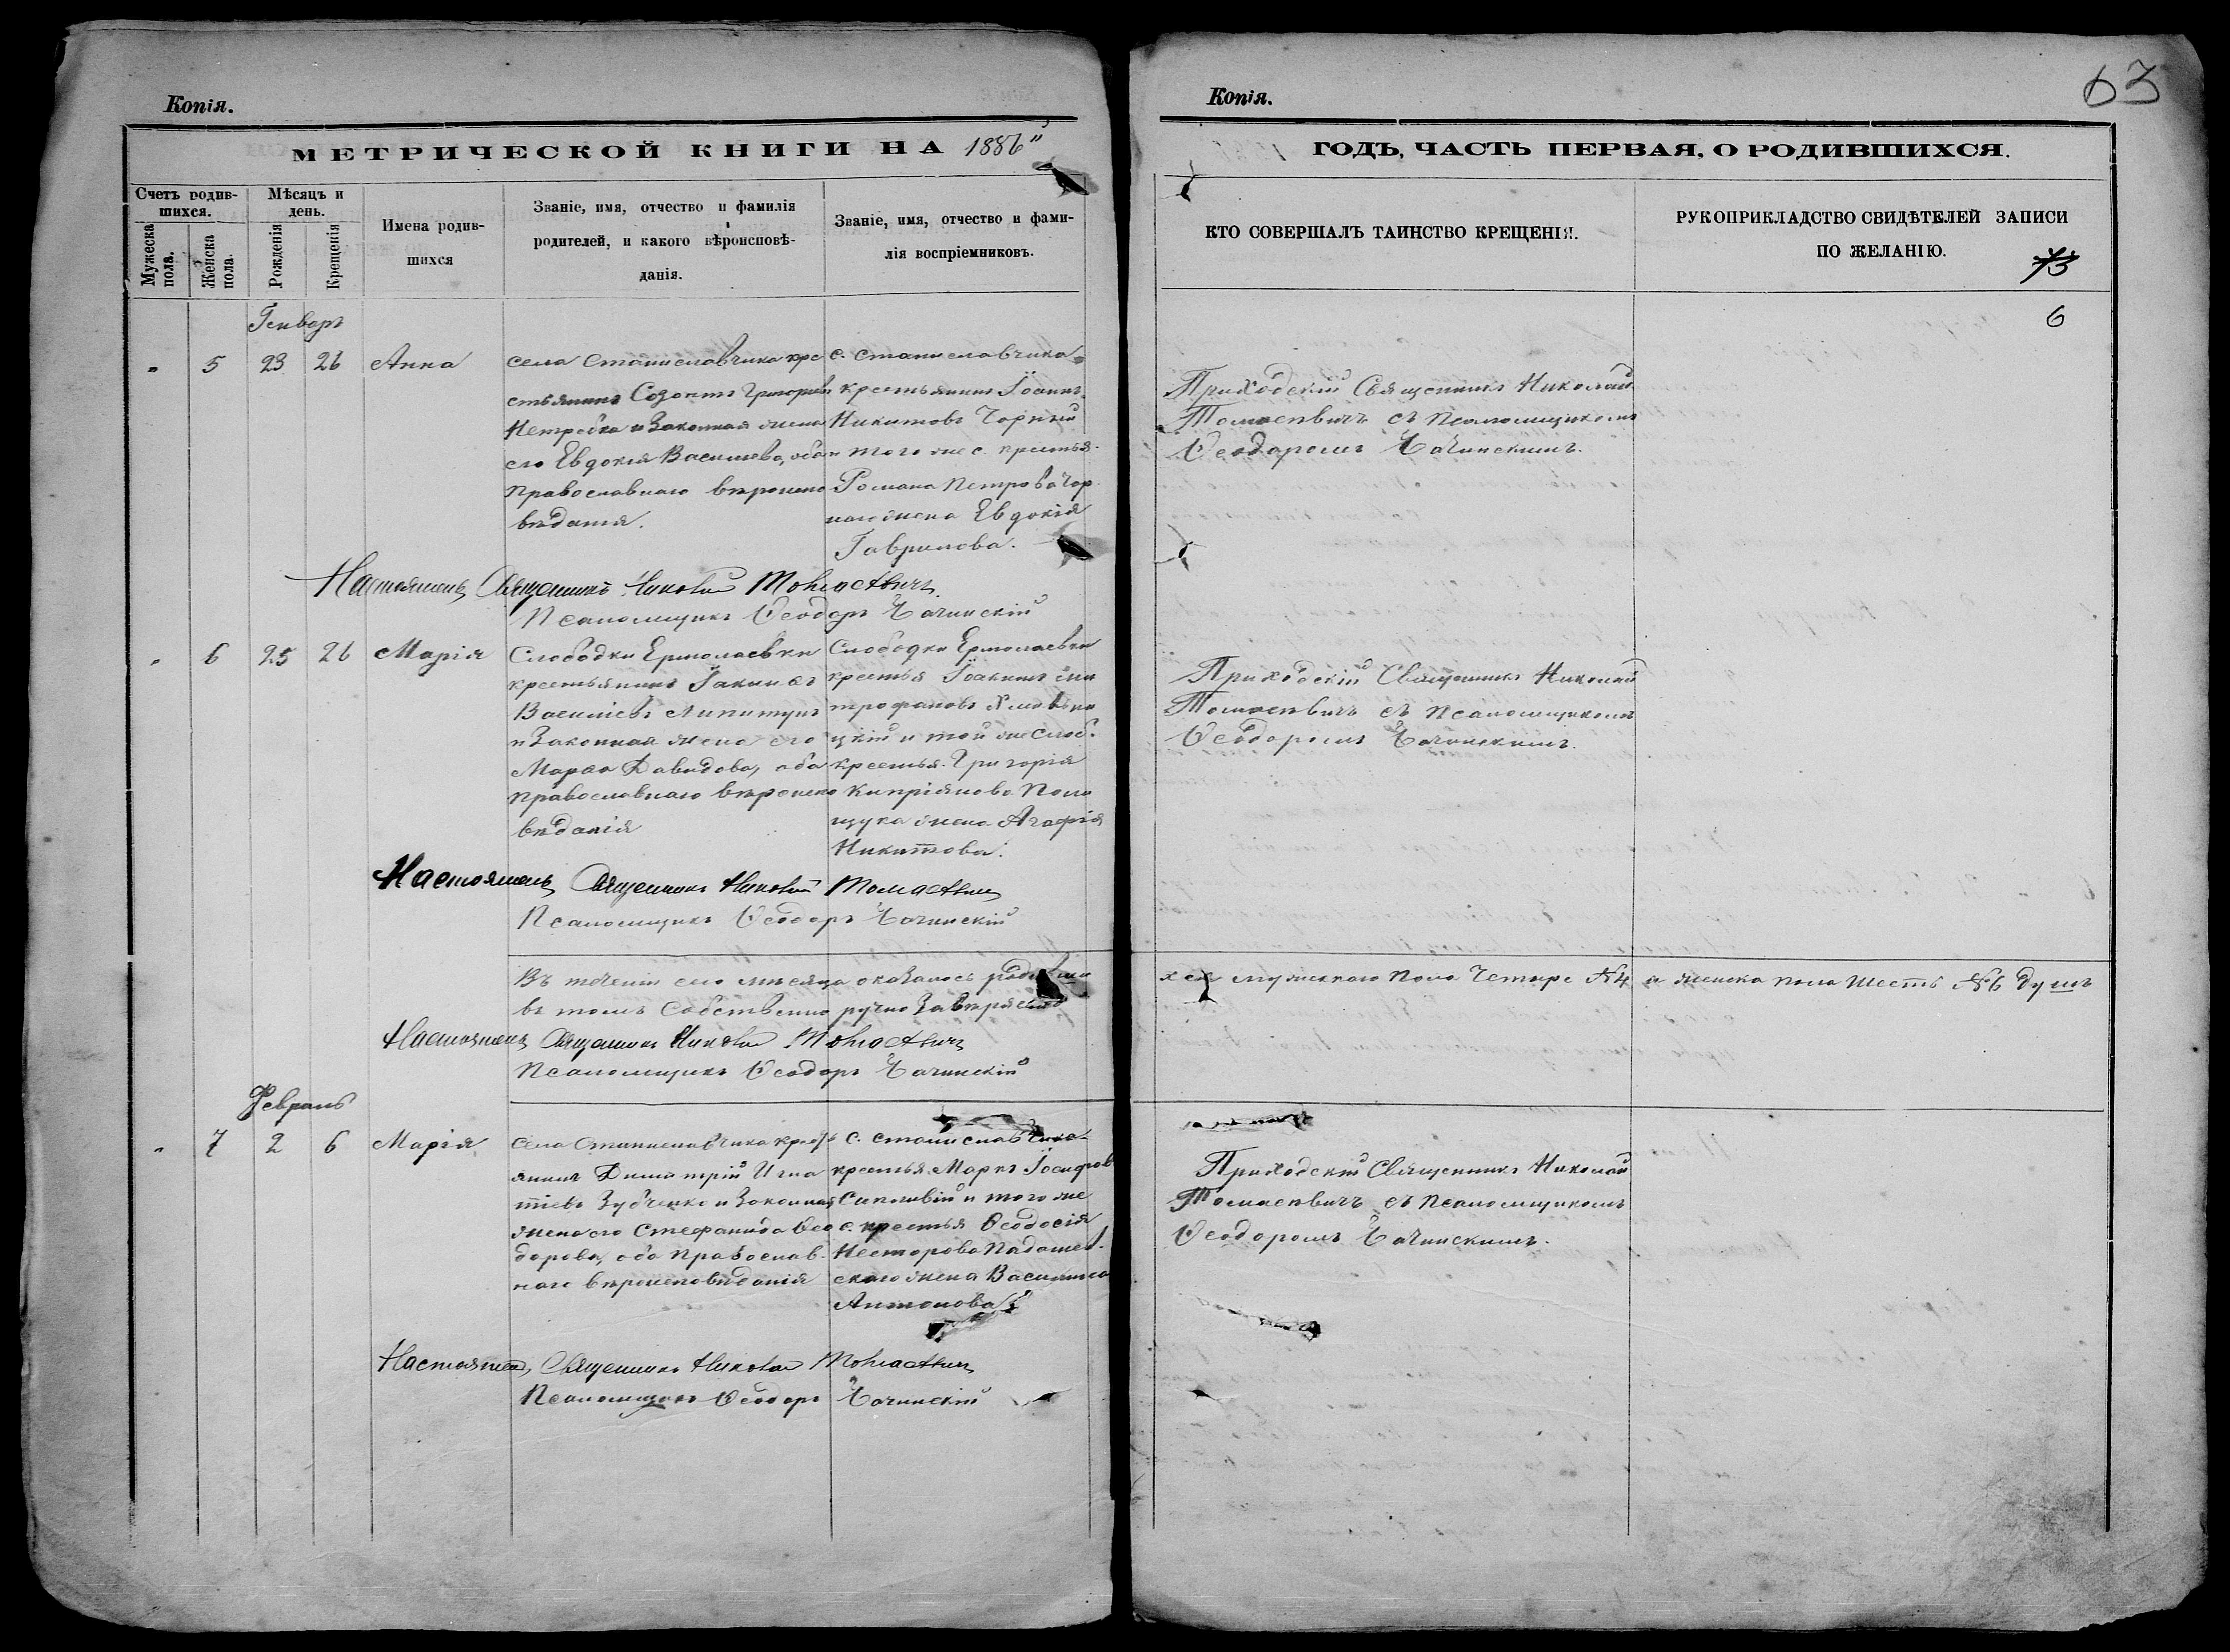 Копія.
МЕТРИЧЕСКОЙ КНИГИ НА 1886"
Счетъ родив-
шихся.
Мужеска
пола.
Женска
пола.
Мѣсяцъ и
день.
Рожденія
Крещенія
Имена родив-
шихся
Званіе, имя, отчество и фамилія
родителей, и какого вѣроисповѣ-
данія.
Званіе, имя, отчество и фами-
лія воспріемниковъ.
Генварь
" 5 23 26 Анна
села Станиславчика кре
стьянинъ Созонтъ Григорьевъ
и Законная жена
его Евдокія Васильева, оба
православнаго вѣроиспо
вѣданія.
с. Станиславчика
крестьянинъ Іоаннъ
Никитовъ Чорный
и того же с. крестья.
Романа Петрова Чор
наго жена Евдокія
Гаврилова.
Настоятель, Священникъ Николай Томасевичъ
Псаломщикъ Ѳеодоръ
" 6 25 26 Марія
Слободки Ермолаевки
крестьянинъ
Василіевъ
и Законная жена его
Марѳа Давидова, оба
православнаго вѣроиспо
вѣданія
Слободки Ермолаевки
крестья Іоакимъ Ми
трофановъ
цкій и той же Слоб.
крестья. Григорія
Кипріянова Поли
щука жена Агафія
Никитова.
Настоятель, Священникъ Николай Томасевичъ
Псаломщикъ Ѳеодоръ
Въ теченіи сего мѣсяца оказалось родивши
въ томъ Собственно ручно Завѣряемъ
Настоятель Священникъ Николай Томасевичъ
Псаломщикъ Ѳеодоръ
Февраль
" 7 2 6 Марія
Села Станиславчика кресть
янинъ Димитрій Игна
тіевъ Зубченко и Законная
жена его Стефанида Ѳео
дорова, оба Православ-
наго вѣроисповѣданія
с. Станиславчика
крестья. Маркъ Іосифов
и того же
с. крестья Ѳеодосія
Несторова
скаго жена Василиса
Антонова
Настоятель, Священникъ Николай Томасевичъ
Псаломщикъ Ѳеодоръ
Копія.
63
ГОДЪ, ЧАСТЬ ПЕРВАЯ, О РОДИВШИХСЯ.
КТО СОВЕРШАЛЪ ТАИНСТВО КРЕЩЕНІЯ.
РУКОПРИКЛАДСТВО СВИДѢТЕЛЕЙ ЗАПИСИ
ПО ЖЕЛАНІЮ.
73
6
Приходскій Священникъ Николай
Томасевичъ съ Псаломщикомъ
Ѳеодоромъ
Приходскій Священникъ Николай
Томасевичъ съ Псаломщикомъ
Ѳеодоромъ
хся мужескаго пола Четыре №4 а женска пола шесть №6 душъ
Приходскій Священникъ Николай
Томасевичъ съ Псаломщикомъ
Ѳеодоромъ